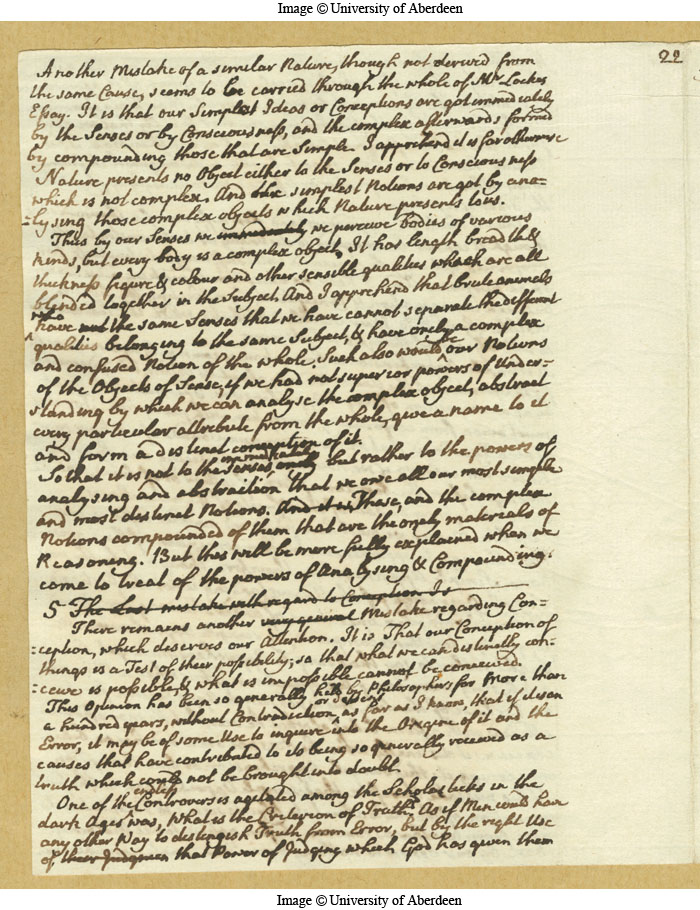 Image © University of Aberdeen
22
Another Mistake of a similar Nature, though not derived from
the same Cause, seems to be carried through the whole of Mr Lockes
Essay. It is that our Simplest Ideas or Conceptions are got immediately
by the Senses or by Consciousness, and the complex afterwards formed
by compounding those that are Simple. I apprehend it is far otherwise
Nature presents no Object either to the Senses or to Consciousness
which is not complex. And the simplest Notions are got by ana=
=lysing those complex objects which Nature presents to us.
Thus by our Senses we immediately we perceive bodies of various
kinds, but every body is a complex object, It has length breadth &
thickness figure & colour and other sensible qualities which are all
blended together in the Subject. And I apprehend that brute animals
who
have not the same Senses that we have cannot separate the different
qualities belonging to the same Subject, & have only a complex
and confused Notion of the whole. Such also would be our Notions
of the Objects of Sense, if we had not superior powers of Under-
standing by which we can analyse the complex object, abstract
every particular attribute from the whole, give a name to it
and form a distinct conception of it.
immediately
So that it is not to the Senses, only but rather to the powers of
analysing and abstraction that we owe all our most simple
and most distinct Notions. And it is, These, and the complex
Notions compounded of them that are the only materials of
Reasoning. But this will be more fully explained when we
come to treat of the powers of Analysing & Compounding.
5 The Last mistake with regard to Conception Is
There remains another very general Mistake regarding Con=
=ception, which deserves our Attention. It is That our Conception of
things is a Test of their possibility, so that what we can distinctly con=
=ceive is possible, & what is impossible cannot be conceived.
This Opinion has been so generally held by Philosophers for More than
or dissent
a hundred years, without Contradiction, as far as I know, that if it is an
Error, it may be of some Use to inquire into the Origine of it and the
causes that have contributed to its being so generally received as a
truth which could not be brought into doubt.
endless
One of the Controversies agitated among the Scholasticks in the
dark Ages was, What is the Criterion of Truth? As if Men could have
any other Way to distinguish Truth from Error, but by the right Use
of their Judgment that Power of Judging which God has given them
Image © University of Aberdeen